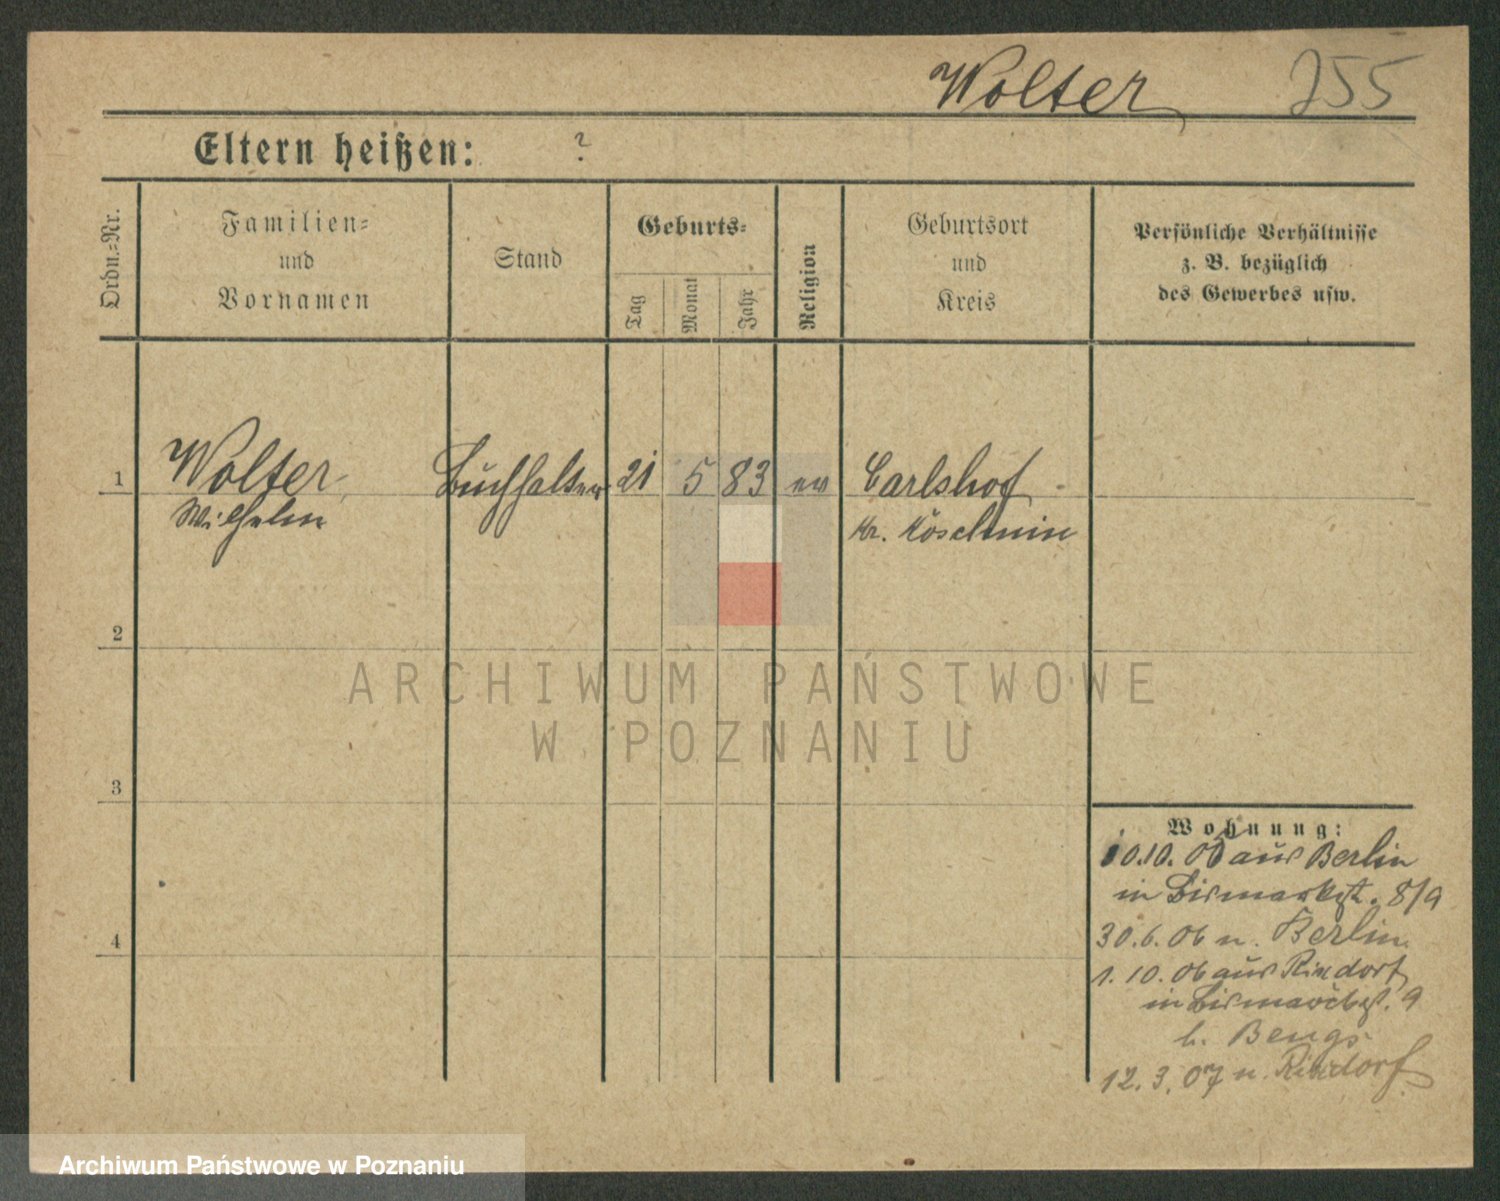 Wolter 255
Eltern heißen: ?
Ordn.=Nr.
Familien=
und
Vornamen
Stand
Geburts=
Tag
Monat
Jahr
Religion
Geburtsort
und
Kreis
Persönliche Verhältnisse
z. B. bezüglich
des Gewerbes usw.
1 Wolter, Buchhalter 21 5 83 ev Carlshof
Wilhelm Kr. Koschmin
2
3
4
Wohnung:
10.10.05 aus Berlin
in Bismarkst. 8/9
30.6.06 n. Berlin
1.10.06 aus Rixdorf
in Bismarckst. 9
b. Bengs
12.3.07 n. Rixdorf
ARCHIWUM PAŃSTWOWE
W POZNANIU
Archiwum Państwowe w Poznaniu